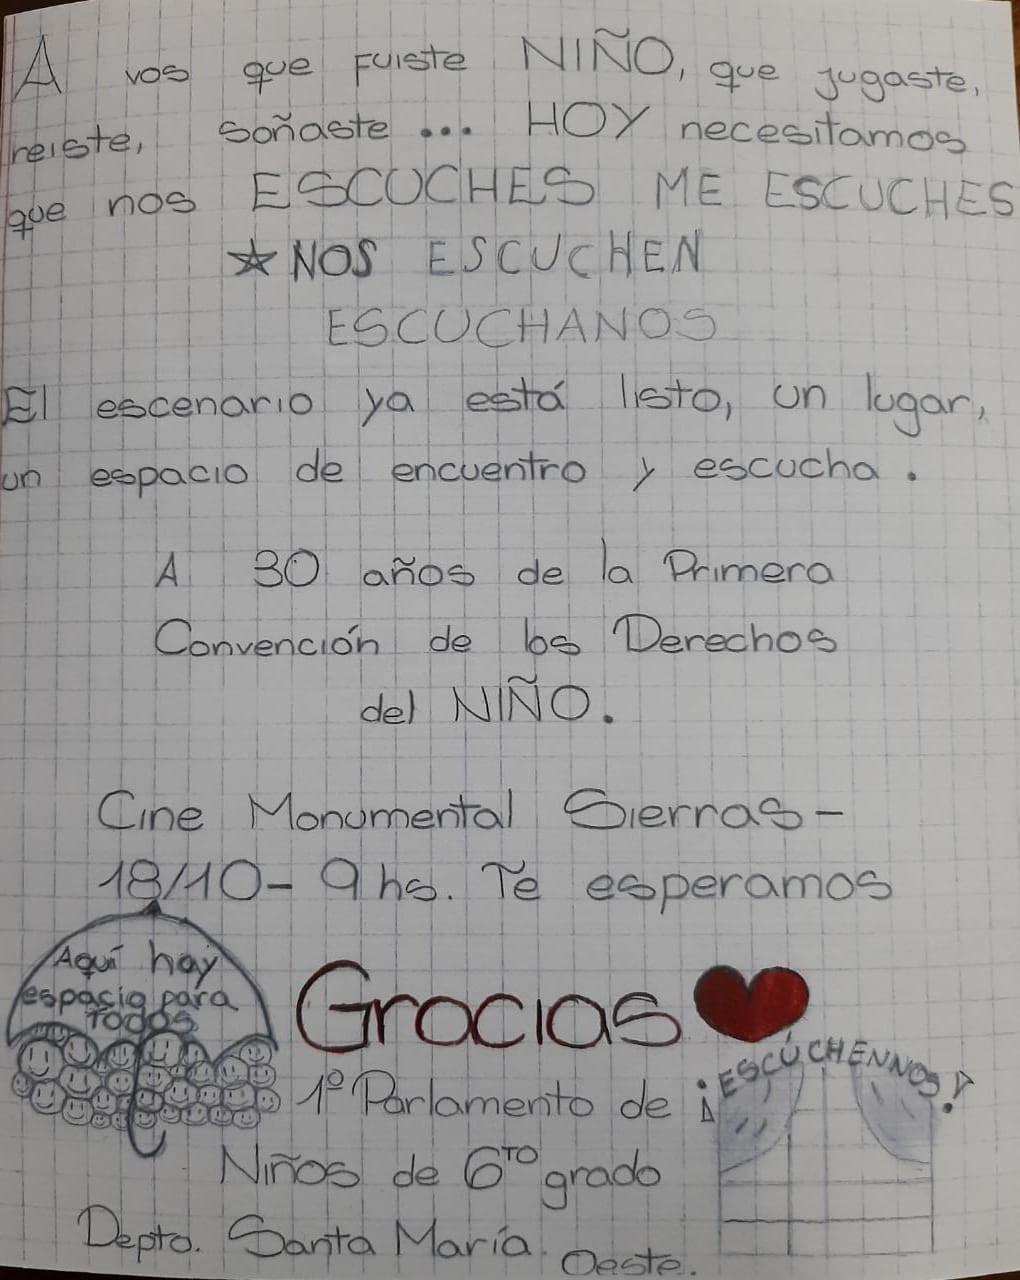 A vos que fuiste NIÑO, que jugaste,
reiste, soñaste... HOY necesitamos
que nos ESCUCHES ME ESCUCHES
☆ NOS ESCUCHEN
ESCUCHANOS
El escenario ya está listo, un lugar,
un espacio de encuentro y escucha.
A 30 años de la Primera
Convención de los Derechos
del NIÑO.
Cine Monumental Sierras-
18/10- 9 hs. Te esperamos
Aquí hay
espacio para
todos
Gracias
¡ESCÚCHENNOS!
1º Parlamento de
Niños de 6TO grado
Depto. Santa María Oeste.